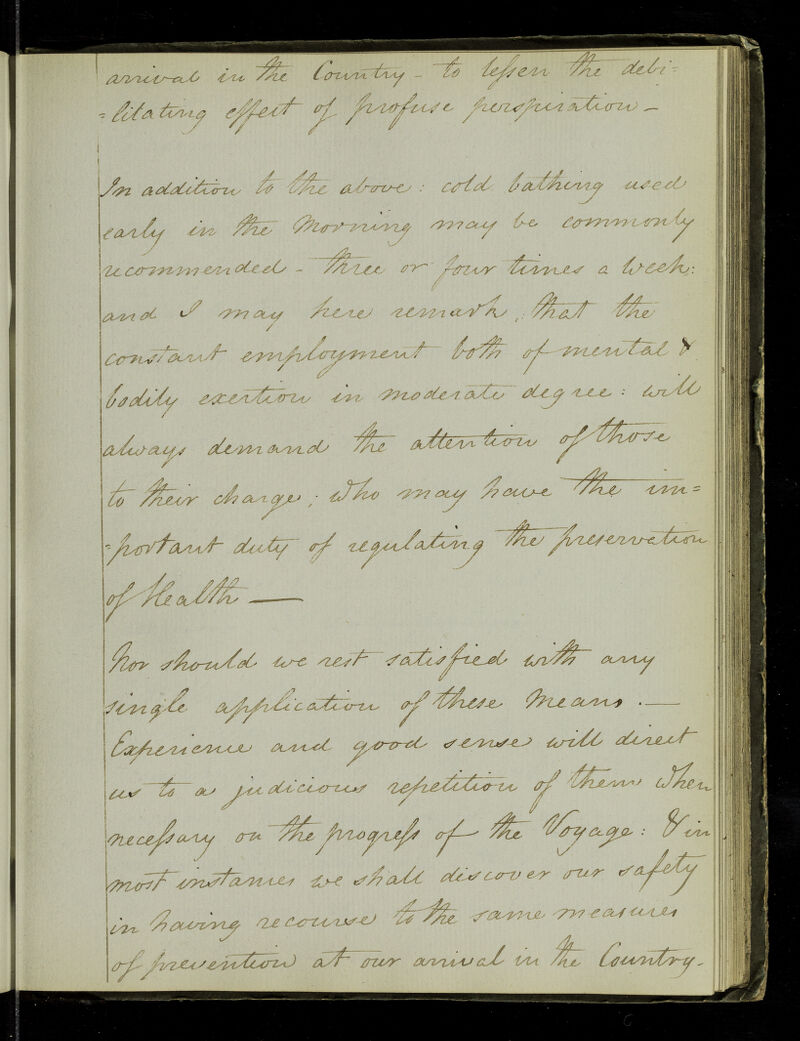 arrival in the Country - to lessen the debi=
=litating effect of profuse perspiration -
In addition to the above: cold bathing used
early in the Morning may be commonly
recommended - three or four times a Week:
and I may here remark, that the
constant employment both of mental &
bodily exertion in moderate degree: will
always demand the attention of those
to their charge; Who may have the im=
=portant duty of regulating the preservation
of Health —
Nor should we rest satisfied with any
single application of these Means. —
Experience and good sense will direct
us to a judicious repetition of them When
necessary on the progress of the Voyage: & in
most instances we shall discover our safety
in having recourse to the same measures
of prevention at our arrival in the Country -